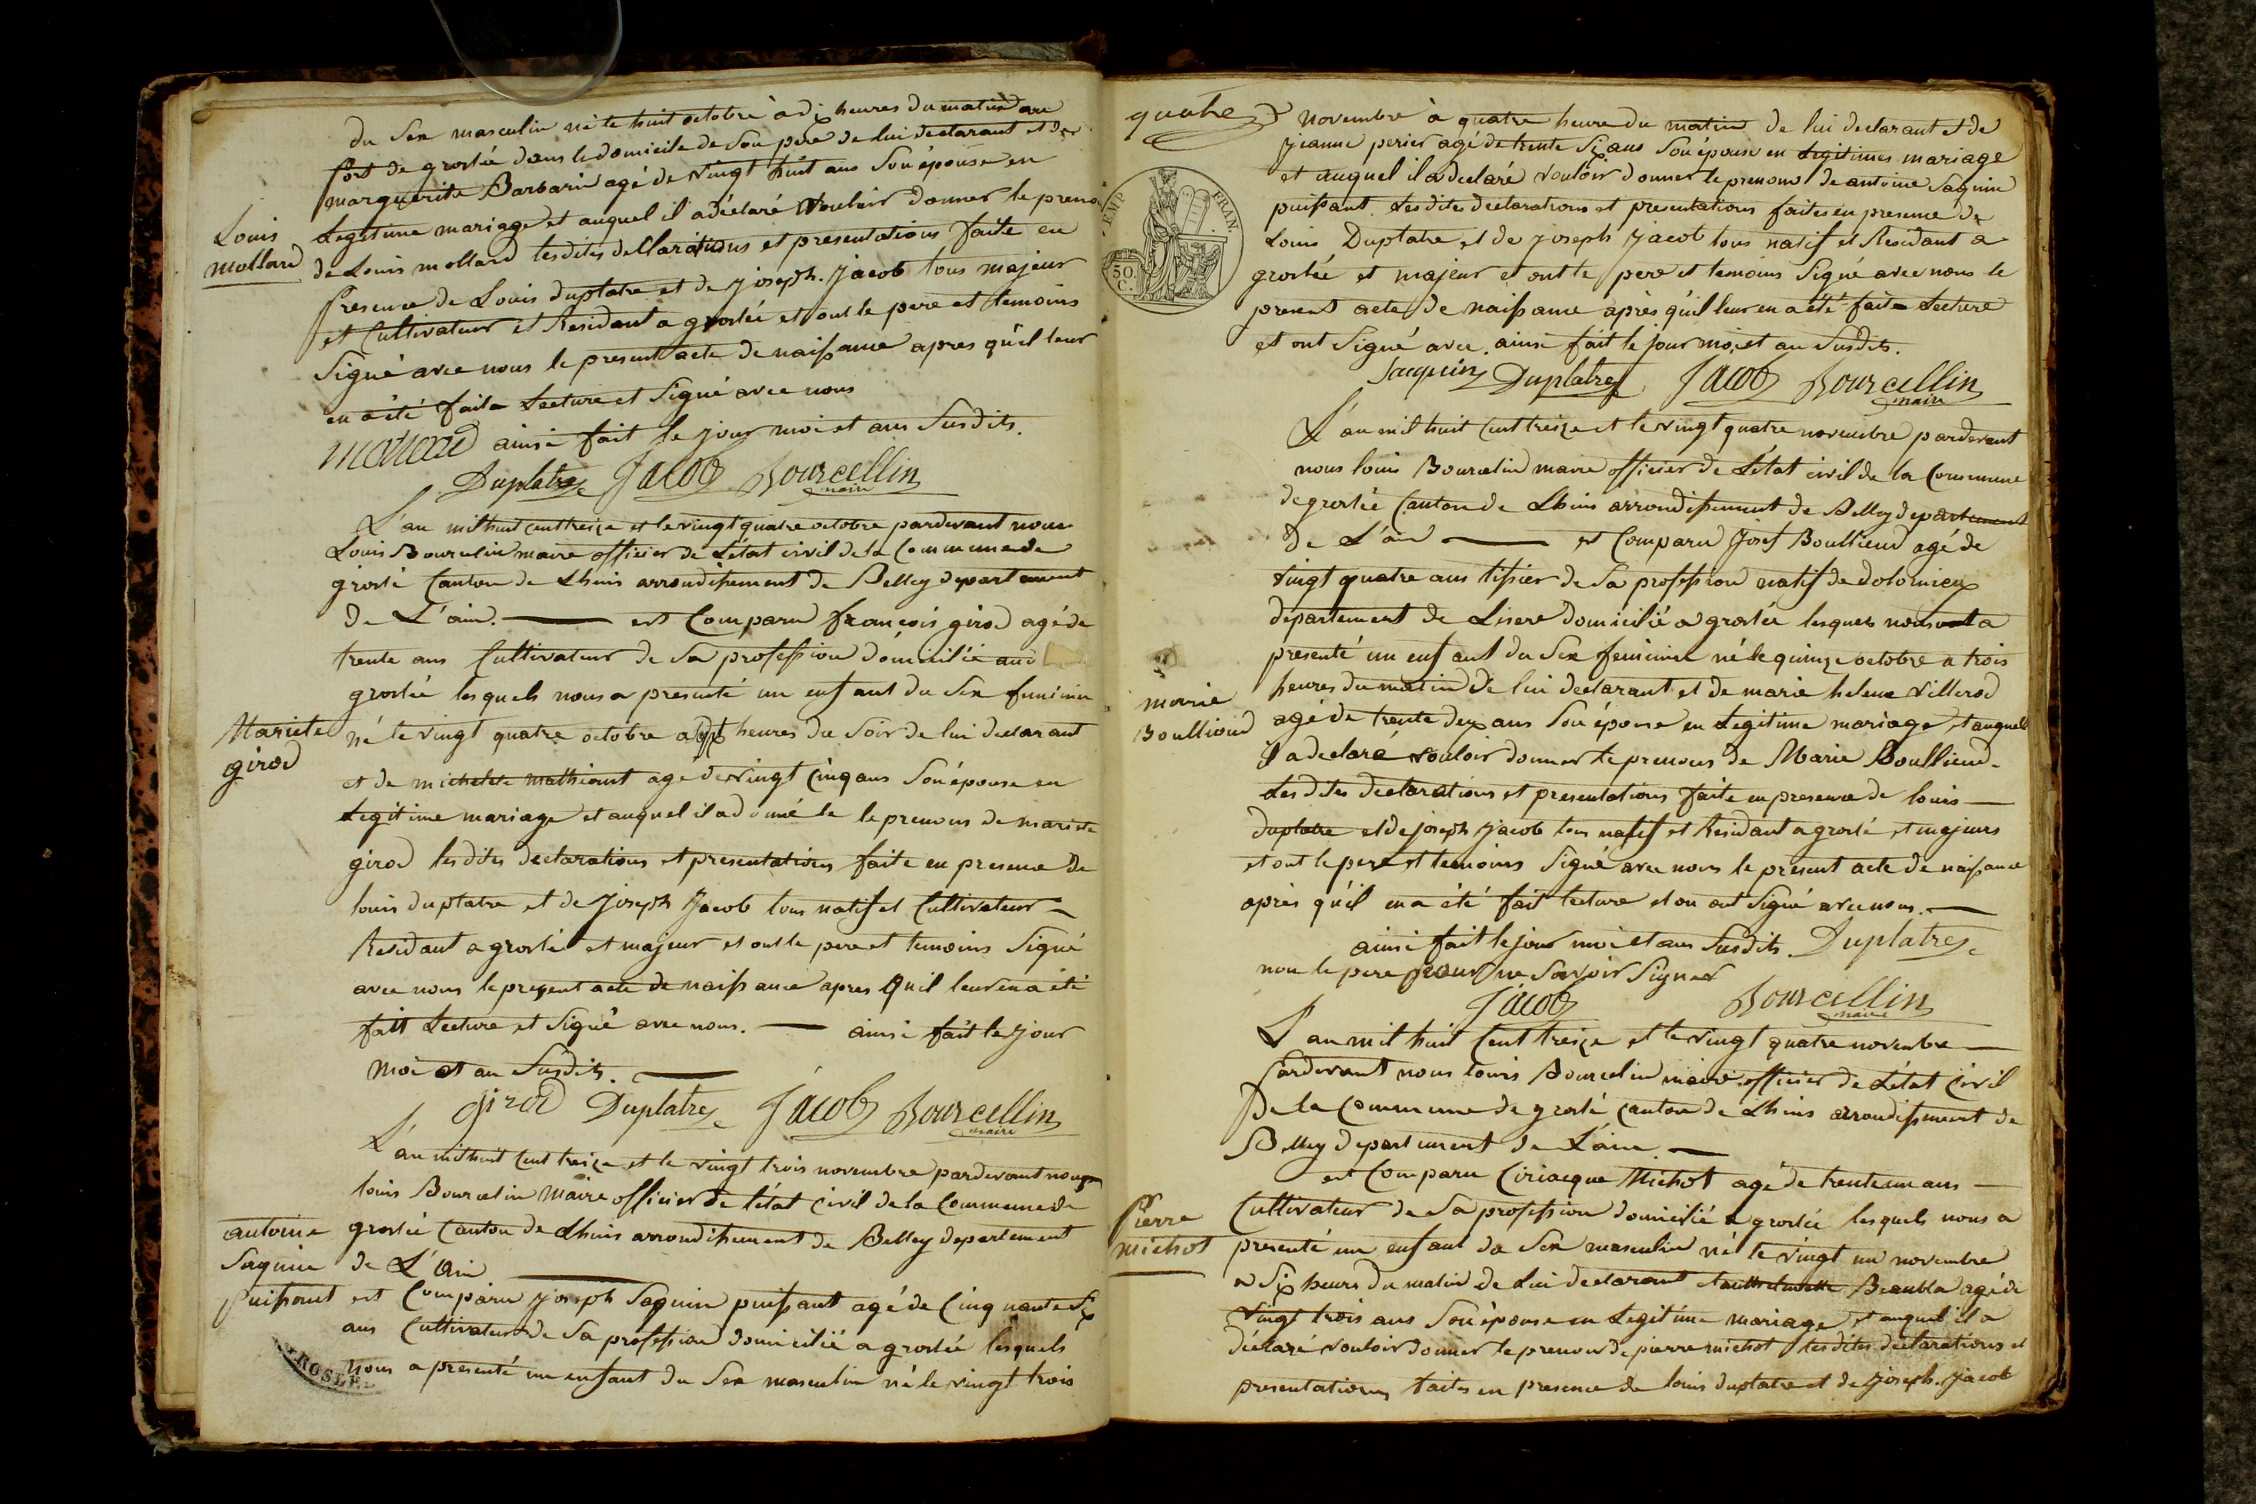 du sex masculin né le huit octobre à dix heures du matin au
fort de groslée dans le domicile de son pere de lui declarant et de
marguerite Barbarin agé de vingt huit ans son épouse en
Louis mollard
Legitime mariage et auquel il a déclaré vouloir donner le preno
de Louis mollard lesdites declarations et presentations faite en
presence de Louis duplatre et de joseph jacob tous majeur
et Cultivateur et Residant a groslée et ont le pere et temoins
Signé avec nous le present acte de naissance apres qu'il leur
en a été faite Lecture et Signé avec nous
mollard ainsi fait le jour moi et ans Susdits.
Duplatre Jacob Bourcellin
maire
L'an mil huit cent treize et le vingt quatre octobre pardevant nous
Louis Bourcelin maire officier de L'état civil de la Commune de
groslé Canton de Lhuis arrondissement de Belley departement
de L'ain. est Comparu françois girod agé de
trente ans Cultivateur de Sa profession domicilié aud
groslée lesquels nous a presenté un enfant du Sex feminin
Mariete girod
né le vingt quatre octobre a heures du Soir de lui declarant
et de michelete mathiant age de vingt cinq ans Son épouse en
Legitime mariage et auquel il a donné le le prenous de mariete
girod lesdites declarations et presentations faite en presence de
louis duplatre et de Joseph Jacob tous natif et Cultivateur
Residant a groslé et majeur et ont le pere et temoins Signé
avec nous le present acte de naissance apres qu'il leur en a été
fait Lecture et Signé avec nous. ainsi fait le jour
moi et an Susdits.
girod Duplatre Jacob Bourcellin
maire
L'an mil huit cent treize et le vingt trois novembre pardevant nous
louis Bourcelin Maire officier de l'état civil de la Commune de
antoine Saquin puissant
groslée Canton de Lhuis arrondissement de Belley departement
de L'ain
est Comparu joseph Saquin puissant agé de Cinquante Six
ans Cultivateur de Sa profession domicilié a groslée lesquels
nous a presenté un enfant du Sex masculin né le vingt trois
ROSLE
quatre
novembre à quatre heure du matin de lui declarant et de
jeanne perier agé de trente Six ans Son épouse en Legitimes mariage
et auquel il a declaré vouloir donner le prenoms de antoine Saquin
puissant. Lesdites declarations et presentations faites en presence de
Louis Duplatre et de joseph jacob tous natif et Residant à
groslée et majeur et ont le pere et temoins Signé avec nous le
present acte de naissance après qu'il leur en a été faite Lecture
et ont Signé avec. ainsi fait le jour moi et an Susdits.
EMP FRAN.
50. C.
Saquin Duplatre Jacob Bourcellin
maire
L'an mil huit Cent treize et le vingt quatre novembre pardevant
nous louis Bourcelin maire officier de L'état civil de la Commune
de groslée Canton de Lhuis arrondissement de Belley departement
de L'ain est Comparu Josef Boullieud agé de
vingt quatre ans tissier de Sa profession natif de dolomieu
departement de Lisere domicilié a groslée lesquels nous a
presenté un enfant du Sex feminin né le quinze octobre a trois
marie Boullioud
heures du matin de lui declarant et de marie helene villerod
agé de trente deux ans Son épouse en Legitime mariage et auquel
Il a declaré vouloir donner le prenous de Marie Boullieud.
Lesdites declarations et presentations faite en presence de louis
duplatre et de joseph jacob tous natif et Residant a groslé et majeurs
et ont le pere et temoins Signé avec nous le present acte de naissance
après qu'il en a été fait lecture et on ont Signé avec nous.
ainsi fait le jour moi et ans Susdits Duplatre
non le pere pour ne Savoir Signer
Jacob Bourcellin
maire
L'an mil huit Cent treize et le vingt quatre novembre
Pardevant nous louis Bourcelin maire officier de L'état Civil
De la Commune de groslé Canton de Lhuis arrondissement de
Belley departement de L'ain.
est Comparu Ciriacque Michot agé de trente un ans
Pierre michot
Cultivateur de Sa profession domicilié a groslée lesquels nous a
presenté un enfant du Sex masculin né le vingt un novembre
a Six heures du matin de Lui declarant Beaubla agé de
vingt trois ans Son épouse en Legitime mariage et auquel il a
déclaré vouloir donner le prenous de pierre michot lesdites declarations et
presentations faites en presence de louis duplatre et de joseph jacob